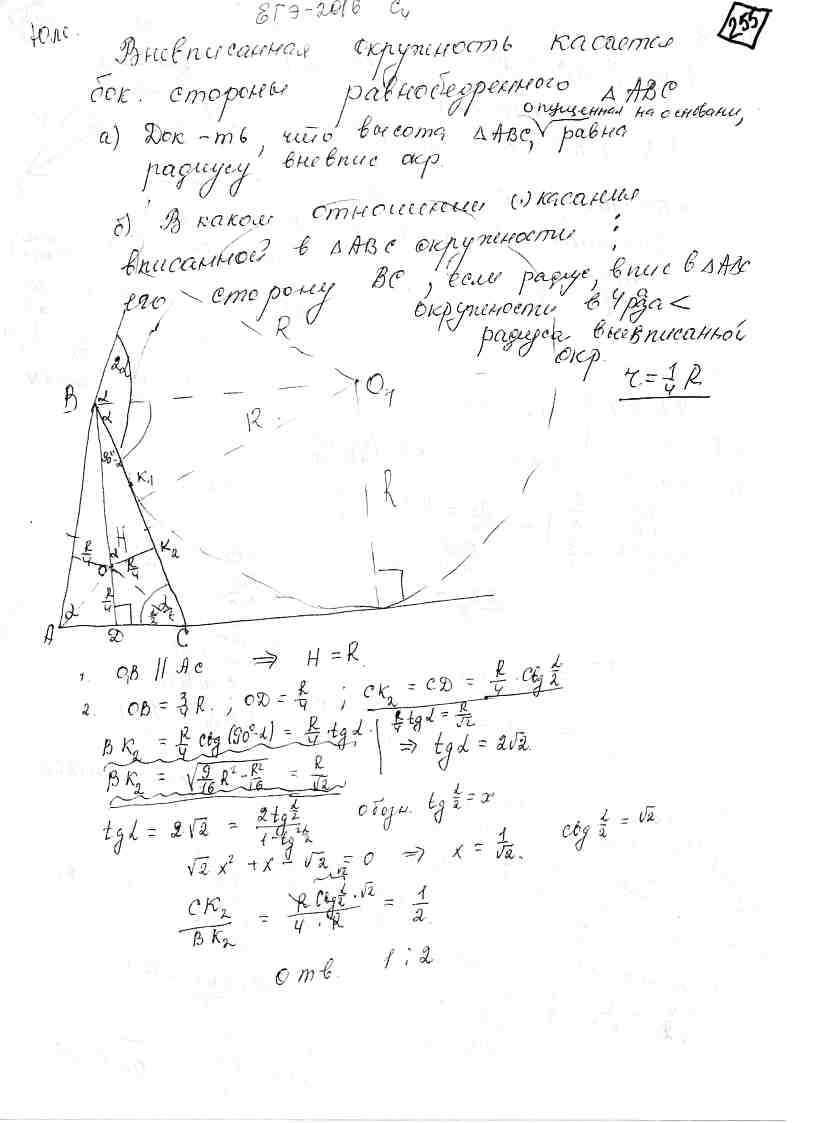 ЕГЭ-2016 C4
255
Вневписанная окружность касается
бок. стороны равнобедренного △ABC
опущенная на основани,
а) Док-ть, что высота △ABC, √ равна
радиусу вневпис окр.
б) В каком отношении (·) касания
вписанной в △ABC окружности :
его сторону BC, если радиус, впис в △ABC
окружности в 4 раза <
радиуса вневписанной
окр.
r = 1/4 R
R
2α
B
α
α
O1
R
90°-α
K1
R
H
K2
R/4
α
O
R/4
R/4
α
α/2
A
D
C
1. O1B || AC ⇒ H = R.
2. OB = 3/4 R. ; OD = R/4 ; CK2 = CD = R/4 · ctg α/2
BK2 = R/4 ctg (90°-α) = R/4 · tg α. | R/4 tg α = R/√2
BK2 = √(9/16 R² - R²/16) = R/√2 ⇒ tg α = 2√2.
tg α = 2√2 = 2tg α/2 / 1-tg² α/2 обозн. tg α/2 = x
√2 x² + x - √2 = 0 ⇒ x = 1/√2. ctg α/2 = √2
CK2/BK2 = R ctg α/2 · √2 / 4 · R = 1/2.
Отв. 1 : 2